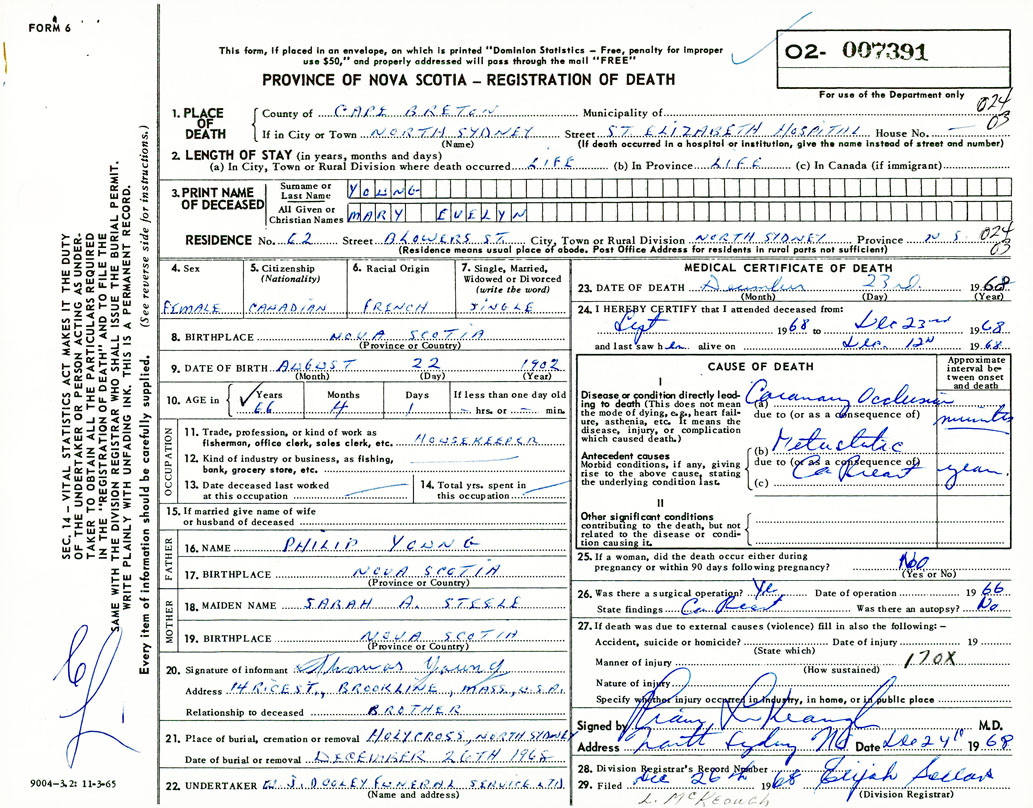 FORM 6
This form, if placed in an envelope, on which is printed "Dominion Statistics – Free, penalty for improper
use $50," and properly addressed will pass through the mail "FREE"
PROVINCE OF NOVA SCOTIA – REGISTRATION OF DEATH
02- 007391
For use of the Department only
024
03
1. PLACE OF DEATH
County of CAPE BRETON Municipality of
If in City or Town NORTH SYDNEY Street ST. ELIZABETH HOSPITAL House No. —
(Name) (If death occurred in a hospital or institution, give the name instead of street and number)
2. LENGTH OF STAY (in years, months and days)
(a) In City, Town or Rural Division where death occurred LIFE (b) In Province LIFE (c) In Canada (if immigrant)
3. PRINT NAME OF DECEASED
Surname or Last Name YOUNG
All Given or Christian Names MARY EVELYN
RESIDENCE No. 62 Street BLOWERS ST. City, Town or Rural Division NORTH SYDNEY Province N.S. 024
03
(Residence means usual place of abode. Post Office Address for residents in rural parts not sufficient)
4. Sex
FEMALE
5. Citizenship (Nationality)
CANADIAN
6. Racial Origin
FRENCH
7. Single, Married, Widowed or Divorced (write the word)
SINGLE
8. BIRTHPLACE NOVA SCOTIA
(Province or Country)
9. DATE OF BIRTH AUGUST 22 1902
(Month) (Day) (Year)
10. AGE in
Years 66
Months 4
Days 1
If less than one day old
— hrs. or — min.
OCCUPATION
11. Trade, profession, or kind of work as fisherman, office clerk, sales clerk, etc. HOUSEKEEPER
12. Kind of industry or business, as fishing, bank, grocery store, etc.
13. Date deceased last worked at this occupation
14. Total yrs. spent in this occupation
15. If married give name of wife or husband of deceased
FATHER
16. NAME PHILIP YOUNG
17. BIRTHPLACE NOVA SCOTIA
(Province or Country)
MOTHER
18. MAIDEN NAME SARAH A. STEELE
19. BIRTHPLACE NOVA SCOTIA
(Province or Country)
20. Signature of informant Thomas Young
Address 14 RICE ST., BROOKLINE, MASS, U.S.A.
Relationship to deceased BROTHER
21. Place of burial, cremation or removal HOLYCROSS, NORTH SYDNEY
Date of burial or removal DECEMBER 26TH 1968
22. UNDERTAKER W. J. DOOLEY FUNERAL SERVICE LTD
(Name and address)
MEDICAL CERTIFICATE OF DEATH
23. DATE OF DEATH December 23rd. 1968
(Month) (Day) (Year)
24. I HEREBY CERTIFY that I attended deceased from:
Sept 1968 to Dec 23rd 1968
and last saw her alive on Dec. 12th 1968
CAUSE OF DEATH
Approximate interval between onset and death
I
Disease or condition directly leading to death (This does not mean the mode of dying, e.g., heart failure, asthenia, etc. It means the disease, injury, or complication which caused death.)
(a) Coronary Occlusion minutes
due to (or as a consequence of)
Antecedent causes
Morbid conditions, if any, giving rise to the above cause, stating the underlying condition last.
(b) Metastatic
due to (or as a consequence of)
Ca Breast year
(c)
II
Other significant conditions contributing to the death, but not related to the disease or condition causing it.
25. If a woman, did the death occur either during pregnancy or within 90 days following pregnancy? No
(Yes or No)
26. Was there a surgical operation? Yes Date of operation 1966
State findings Ca Breast Was there an autopsy? No
27. If death was due to external causes (violence) fill in also the following:–
Accident, suicide or homicide? Date of injury 19
(State which)
Manner of injury 170X
(How sustained)
Nature of injury
Specify whether injury occurred in industry, in home, or in public place
Signed by M.D.
Address North Sydney NS Date Dec 24th 1968
28. Division Registrar's Record Number
29. Filed Dec 26th 1968
(Division Registrar)
L. McKeough
SEC. 14 – VITAL STATISTICS ACT MAKES IT THE DUTY
OF THE UNDERTAKER OR PERSON ACTING AS UNDER-
TAKER TO OBTAIN ALL THE PARTICULARS REQUIRED
IN THE "REGISTRATION OF DEATH" AND TO FILE THE
SAME WITH THE DIVISION REGISTRAR WHO SHALL ISSUE THE BURIAL PERMIT.
WRITE PLAINLY WITH UNFADING INK. THIS IS A PERMANENT RECORD.
Every item of information should be carefully supplied. (See reverse side for instructions.)
9004-3.2: 11-3-65